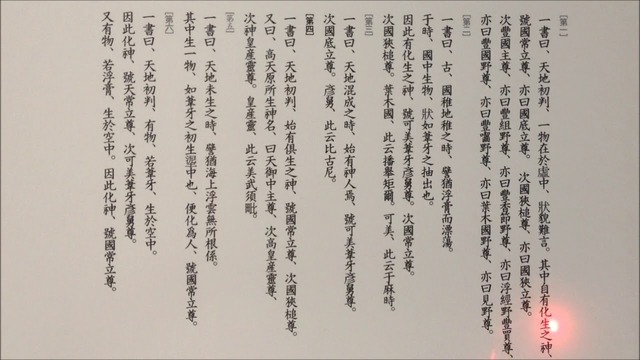 [第一]
一書曰、天地初判、一物在於虛中、狀貌難言。其中自有化生之神、
號國常立尊、亦曰國底立尊。次國狹槌尊、亦曰國狹立尊。
次豐國主尊、亦曰豐組野尊、亦曰豐香節野尊、亦曰浮經野豐買尊、
亦曰豐國野尊、亦曰豐囓野尊、亦曰葉木國野尊、亦曰見野尊。
[第二]
一書曰、古、國稚地稚之時、譬猶浮膏而漂蕩。
于時、國中生物、狀如葦牙之抽出也。
因此有化生之神、號可美葦牙彥舅尊。次國常立尊。
次國狹槌尊。葉木國、此云播舉矩爾。可美、此云于麻時。
[第三]
一書曰、天地混成之時、始有神人焉、號可美葦牙彥舅尊。
次國底立尊。彥舅、此云比古尼。
[第四]
一書曰、天地初判、始有俱生之神、號國常立尊、次國狹槌尊。
又曰、高天原所生神名、曰天御中主尊、次高皇產靈尊、
次神皇產靈尊。皇產靈、此云美武須毗。
[第五]
一書曰、天地未生之時、譬猶海上浮雲無所根係。
其中生一物、如葦牙之初生埿中也、便化為人、號國常立尊。
[第六]
一書曰、天地初判、有物、若葦牙、生於空中。
因此化神、號天常立尊、次可美葦牙彥舅尊。
又有物、若浮膏、生於空中。因此化神、號國常立尊。